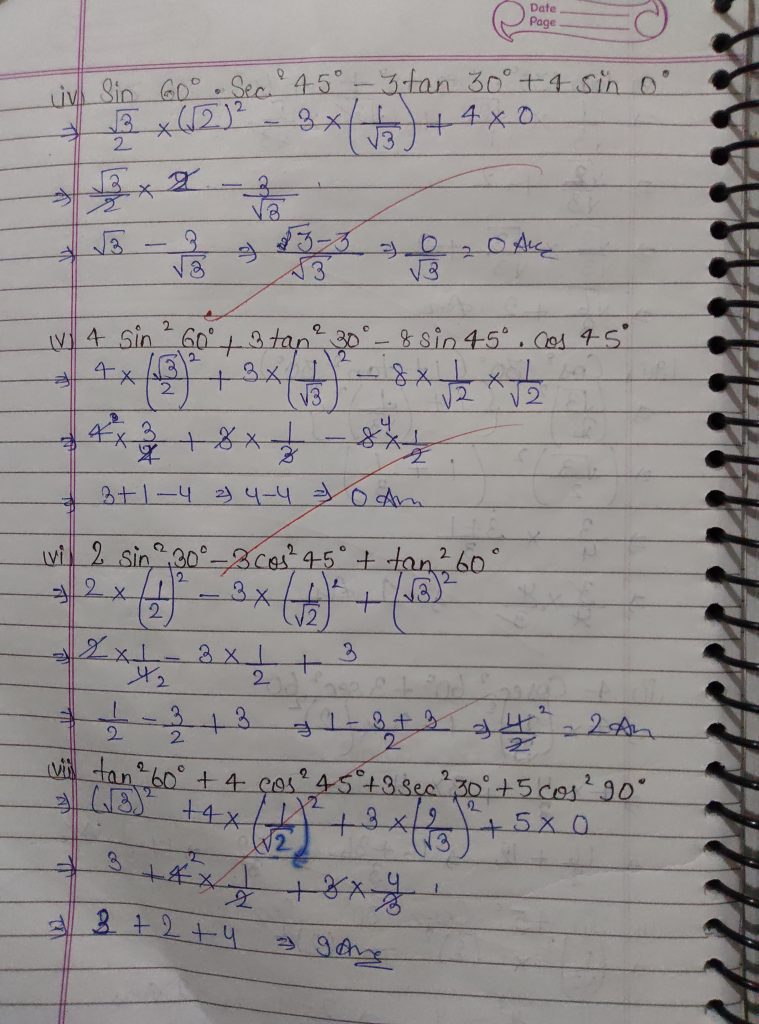 Date
Page
(iv) Sin 60° · Sec² 45° - 3 tan 30° + 4 sin 0°
⇒ √3/2 × (√2)² - 3 × (1/√3) + 4 × 0
⇒ √3/2 × 2 - 3/√3
⇒ √3 - 3/√3 ⇒ √3-3/√3 ⇒ 0/√3 = 0 Ans
(v) 4 Sin² 60° + 3 tan² 30° - 8 sin 45° . Cos 45°
⇒ 4 × (√3/2)² + 3 × (1/√3)² - 8 × 1/√2 × 1/√2
⇒ 4 × 3/4 + 3 × 1/3 - 8 4 × 1/2
⇒ 3+1-4 ⇒ 4-4 ⇒ 0 Ans
(vi) 2 sin² 30° - 3 cos² 45° + tan² 60°
⇒ 2 × (1/2)² - 3 × (1/√2)² + (√3)²
⇒ 2 × 1/4 2 - 3 × 1/2 + 3
⇒ 1/2 - 3/2 + 3 ⇒ 1-3+3/2 ⇒ 4/2 2 = 2 Ans
(vii) tan² 60° + 4 cos² 45° + 3 sec² 30° + 5 cos² 90°
⇒ (√3)² + 4 × (1/√2)² + 3 × (2/√3)² + 5 × 0
⇒ 3 + 4 2 × 1/2 + 3 × 4/3
⇒ 3 + 2 + 4 ⇒ 9 Ans